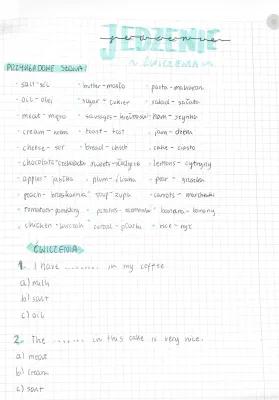 JEDZENIE
ĆWICZENIA
PRZYKŁADOWE SŁOWA:
· salt - sól · butter - masło · pasta - makaron
· oil - olej · sugar - cukier · salad - sałata
· meat - mięso · sausages - kiełbaski · ham - szynka
· cream - krem · toast - tost · jam - dżem
· cheese - ser · bread - chleb · cake - ciasto
· chocolate - czekolada · sweets - słodycze · lemons - cytryny
· apples - jabłka · plum - śliwka · pear - gruszka
· peach - brzoskwinia · soup - zupa · carrots - marchewki
· tomatoes - pomidory · potatoes - ziemniaki · bananas - banany
· chicken - kurczak · cereal - płatki · rice - ryż
ĆWICZENIA
1. I have ........ in my coffee
a) milk
b) salt
c) oil
2. The ........ in this cake is very nice.
a) meat
b) cream
c) salt